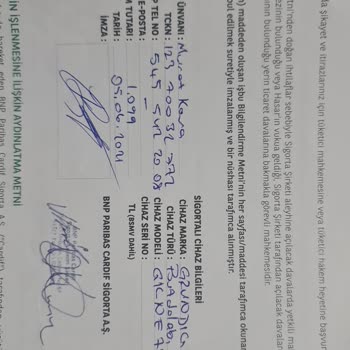 şikayet ve itirazlarınız için tüketici mahkemesine veya tüketici hakem heyetine
doğan ihtilaflar sebebiyle Sigorta Şirketi aleyhine açılacak davalarda yetkili
bulunduğu veya Hasar'ın vukua geldiği, Sigorta Şirketi tarafından açılacak
bulunduğu yerin ticaret davalarına bakmakla görevli mahkemesidir.
) maddeden oluşan işbu Bilgilendirme Metni'nin her sayfası/maddesi tarafımca
edilmek suretiyle imzalanmış ve bir nüshası tarafımca alınmıştır.
SİGORTALI CİHAZ BİLGİLERİ
ÜNVANI : Murat Kara
CİHAZ MARKA : GRUNDIG
TCKN :
CİHAZ TÜRÜ :
TEL NO : 545 542 20 08
CİHAZ MODELİ :
E-POSTA : —
CİHAZ SERİ NO :
TUTARI : 1.099
TL(BSMV DAHİL)
TARİH : 05.06.2021
İMZA :
BNP PARIBAS CARDIF SİGORTA A.Ş.
İŞLENMESİNE İLİŞKİN AYDINLATMA METNİ
hareket eden BNP Paribas Cardif Sigorta A.Ş. ("Cardif") tarafından